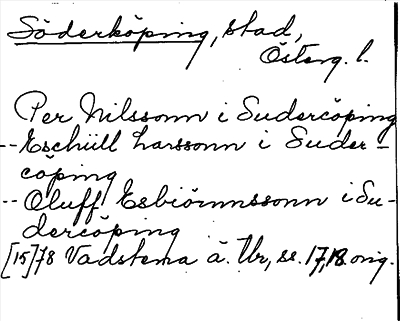 Söderköping, stad,
Österg. l.
Per Nilssonn i Suderköping
-- Eschiill Larssonn i Suder-
cöping
-- Oluff Esbiörnnssonn i Su-
dercöping
[15]78 Vadstena ä. Ur, se. 17,18. orig.